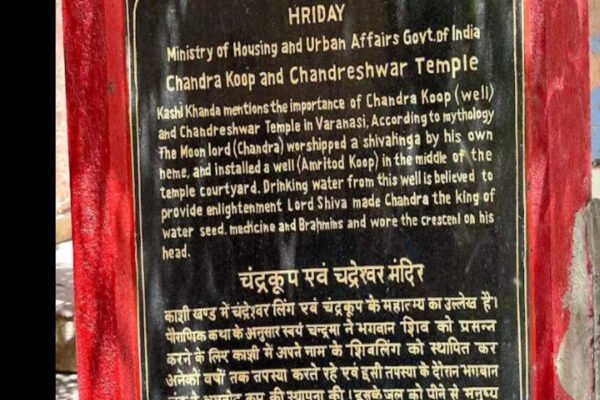 HRIDAY
Ministry of Housing and Urban Affairs Govt.of India
Chandra Koop and Chandreshwar Temple
Kashi Khanda mentions the importance of Chandra Koop (well)
and Chandreshwar Temple in Varanasi, According to mythology
The Moon lord (Chandra) worshipped a shivalinga by his own
heme, and installed a well (Amritod Koop) in the middle of the
temple courtyard. Drinking water from this well is believed to
provide enlightenment Lord Shiva made Chandra the king of
water seed, medicine and Brahmins and wore the crescent on his
head.
चंद्रकूप एवं चद्रेश्वर मंदिर
काशी खण्ड में चंद्रेश्वर लिंग एवं चंद्रकूप के महात्म्य का उल्लेख है।
पौराणिक कथा के अनुसार स्वयं चन्द्रमा ने भगवान शिव को प्रसन्न
करने के लिए काशी में अपने नाम के शिवलिंग को स्थापित कर
अनेकों वर्षो तक तपस्या करते रहे एवं इसी तपस्या के दौरान भगवान
कूप की स्थापना की। इसके जल को पीने से मनुष्य